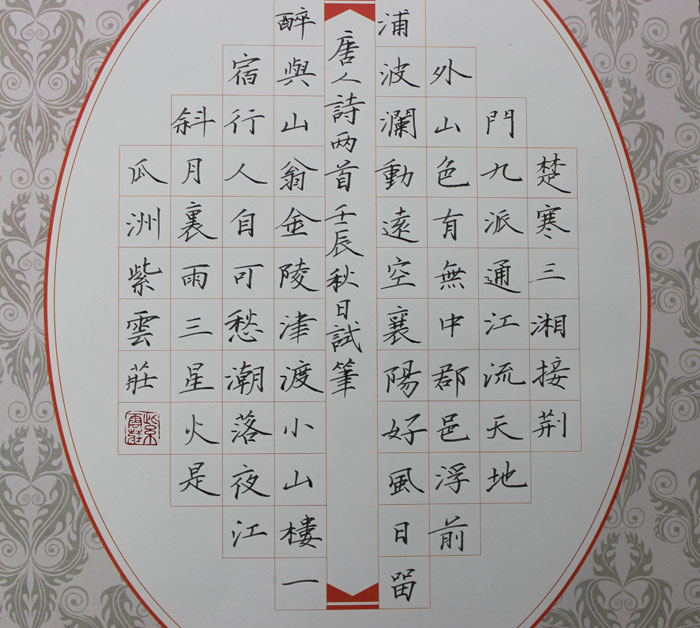 楚寒三湘接荆
門九派通江流天地
外山色有無中郡邑浮前
浦波瀾動遠空襄陽好風日留
唐人詩两首壬辰秋日試筆
醉與山翁金陵津渡小山樓一
宿行人自可愁潮落夜江
斜月裏兩三星火是
瓜洲紫雲莊
紫雲莊